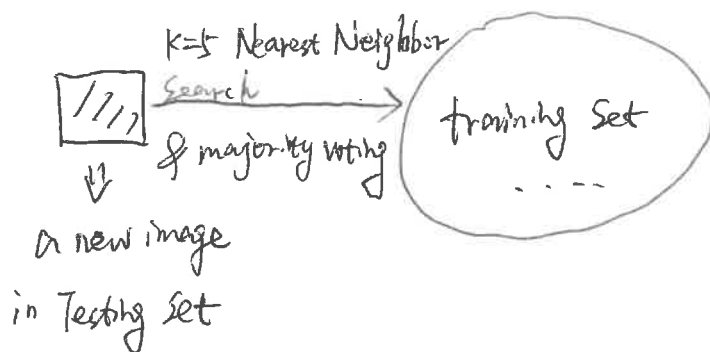 K=5 Nearest Neighbor
Search
& majority voting
training Set
. . . .
a new image
in Testing Set